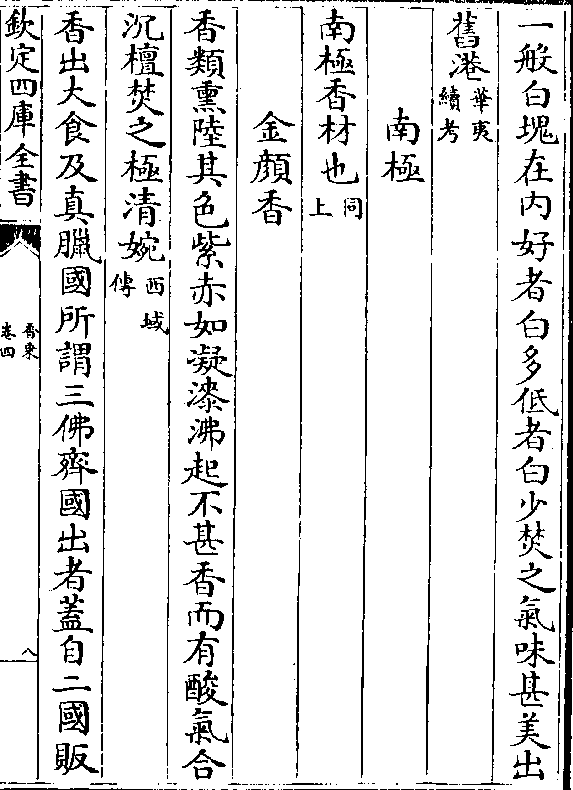 一般白塊在内好者白多低者白少焚之氣味甚美出
舊港華夷續考
南極
南極香材也同上
金顔香
香類熏陸其色紫赤如凝漆沸起不甚香而有酸氣合
沉檀焚之極清婉西域傳
香出大食及真臘國所謂三佛齊國出者蓋自二國販
欽定四庫全書
香乗
卷四
八